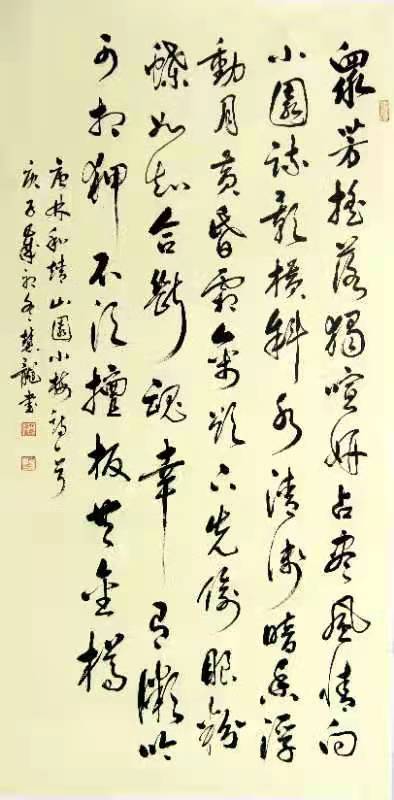 眾芳搖落獨喧妍占盡風情向
小園疏影橫斜水清淺暗香浮
動月黃昏霜禽欲下先偷眼粉
蝶如知合斷魂幸有微吟
可相狎不須檀板共金樽
林和靖山園小梅詩
庚子歲初冬龍書